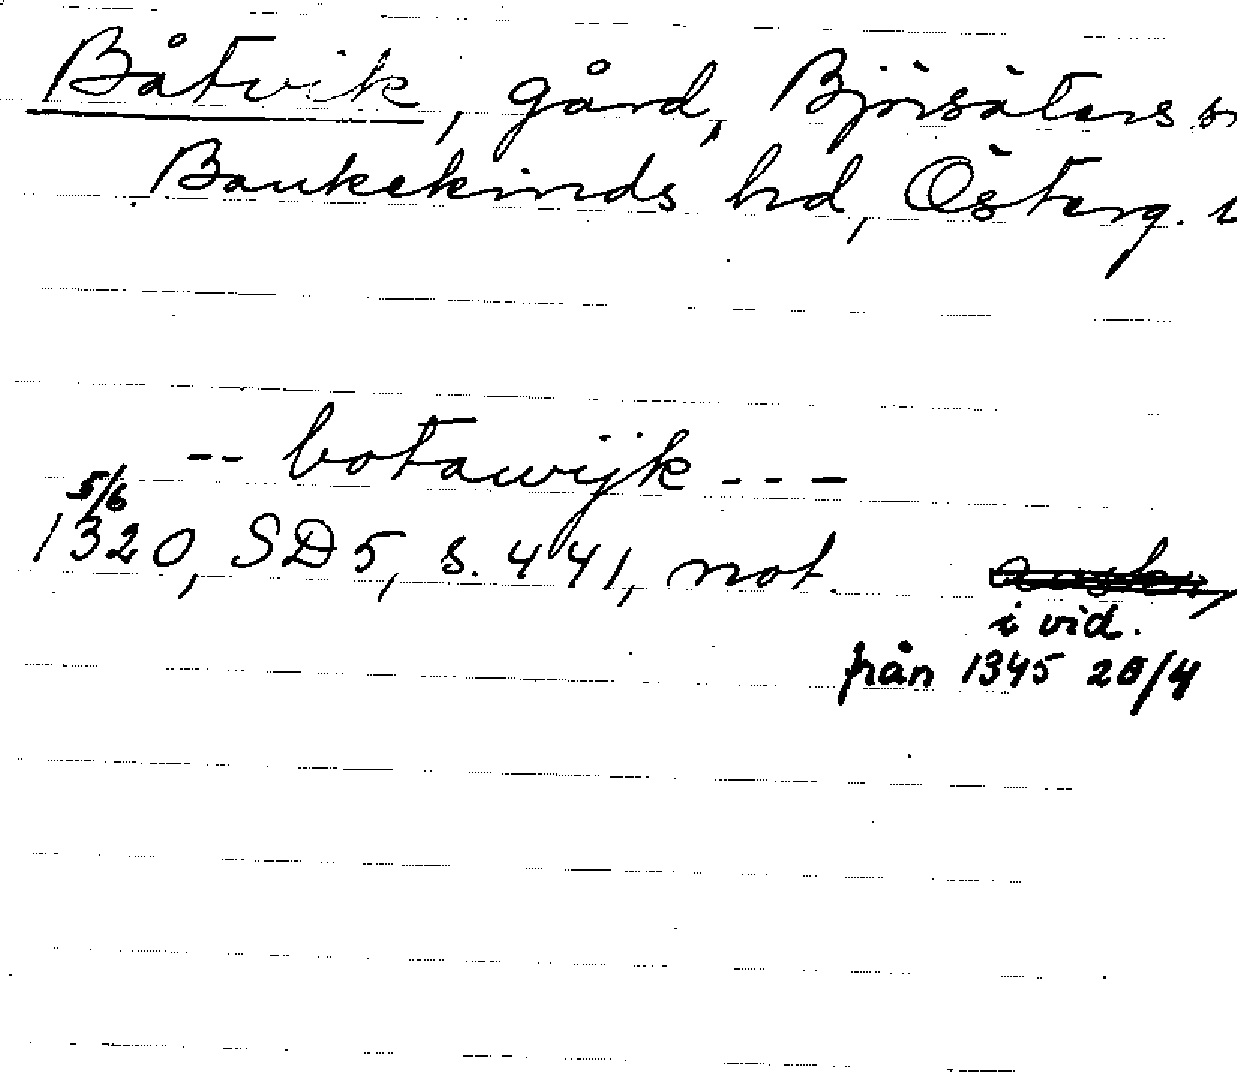 Båtvik, gård, Björsäters sn
Bankekinds hd, Österg.
-- botawijk ---
5/6
1320, SD 5, s. 441, not.
i vid.
från 1345 20/4